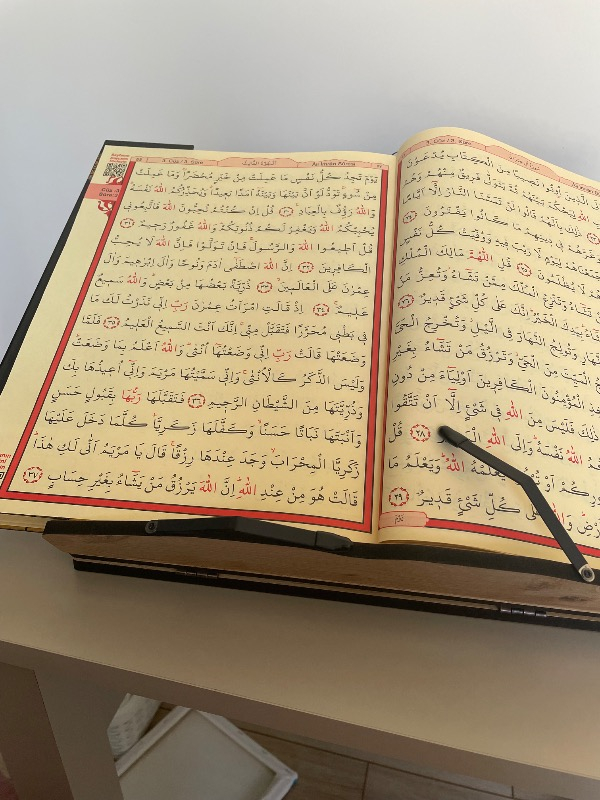 3. Cüz / 3. Sûre
الَّذِينَ اُوتُوا نَصِيبًا مِنَ الْكِتَابِ يُدْعَوْنَ
اللّٰهِ لِيَحْكُمَ بَيْنَهُمْ ثُمَّ يَتَوَلّٰى فَرِيقٌ مِنْهُمْ وَهُمْ
ذٰلِكَ بِاَنَّهُمْ قَالُوا لَنْ تَمَسَّنَا النَّارُ اِلَّٓا اَيَّامًا
وَغَرَّهُمْ فِي دِينِهِمْ مَا كَانُوا يَفْتَرُونَ ﴿٢٤﴾
جَمَعْنَاهُمْ لِيَوْمٍ لَا رَيْبَ فِيهِ وَوُفِّيَتْ كُلُّ نَفْسٍ
وَهُمْ لَا يُظْلَمُونَ ﴿٢٥﴾ قُلِ اللّٰهُمَّ مَالِكَ الْمُلْكِ
تَشَٓاءُ وَتَنْزِعُ الْمُلْكَ مِمَّنْ تَشَٓاءُ وَتُعِزُّ مَنْ
تَشَٓاءُ بِيَدِكَ الْخَيْرُ اِنَّكَ عَلٰى كُلِّ شَيْءٍ قَدِيرٌ ﴿٢٦﴾
النَّهَارِ وَتُولِجُ النَّهَارَ فِي الَّيْلِ وَتُخْرِجُ الْحَيَّ
الْمَيِّتَ مِنَ الْحَيِّ وَتَرْزُقُ مَنْ تَشَٓاءُ بِغَيْرِ
الْمُؤْمِنُونَ الْكَافِرِينَ اَوْلِيَٓاءَ مِنْ دُونِ
ذٰلِكَ فَلَيْسَ مِنَ اللّٰهِ فِي شَيْءٍ اِلَّٓا اَنْ تَتَّقُوا
اللّٰهُ نَفْسَهُ وَاِلَى اللّٰهِ ﴿٢٨﴾ قُلْ
اَوْ يَعْلَمْهُ اللّٰهُ وَيَعْلَمُ مَا
كُلِّ شَيْءٍ قَدِيرٌ ﴿٢٩﴾
يَوْمَ
3. Cüz / 3. Sûre
Âl-i İmrân Sûresi
يَوْمَ تَجِدُ كُلُّ نَفْسٍ مَا عَمِلَتْ مِنْ خَيْرٍ مُحْضَرًا وَمَا عَمِلَتْ
مِنْ سُٓوءٍ تَوَدُّ لَوْ اَنَّ بَيْنَهَا وَبَيْنَهُٓ اَمَدًا بَعِيدًا وَيُحَذِّرُكُمُ اللّٰهُ نَفْسَهُ
وَاللّٰهُ رَؤُفٌ بِالْعِبَادِ ﴿٣٠﴾ قُلْ اِنْ كُنْتُمْ تُحِبُّونَ اللّٰهَ فَاتَّبِعُونِي
يُحْبِبْكُمُ اللّٰهُ وَيَغْفِرْ لَكُمْ ذُنُوبَكُمْ وَاللّٰهُ غَفُورٌ رَحِيمٌ ﴿٣١﴾
قُلْ اَطِيعُوا اللّٰهَ وَالرَّسُولَ فَاِنْ تَوَلَّوْا فَاِنَّ اللّٰهَ لَا يُحِبُّ
الْكَافِرِينَ ﴿٣٢﴾ اِنَّ اللّٰهَ اصْطَفٰٓى اٰدَمَ وَنُوحًا وَاٰلَ اِبْرٰهِيمَ وَاٰلَ
عِمْرٰنَ عَلَى الْعَالَمِينَ ﴿٣٣﴾ ذُرِّيَّةً بَعْضُهَا مِنْ بَعْضٍ وَاللّٰهُ سَمِيعٌ
عَلِيمٌ ﴿٣٤﴾ اِذْ قَالَتِ امْرَاَتُ عِمْرٰنَ رَبِّ اِنِّي نَذَرْتُ لَكَ مَا
فِي بَطْنِي مُحَرَّرًا فَتَقَبَّلْ مِنِّي اِنَّكَ اَنْتَ السَّمِيعُ الْعَلِيمُ ﴿٣٥﴾ فَلَمَّا
وَضَعَتْهَا قَالَتْ رَبِّ اِنِّي وَضَعْتُهَٓا اُنْثٰى وَاللّٰهُ اَعْلَمُ بِمَا وَضَعَتْ
وَلَيْسَ الذَّكَرُ كَالْاُنْثٰى وَاِنِّي سَمَّيْتُهَا مَرْيَمَ وَاِنِّٓي اُعِيذُهَا بِكَ
وَذُرِّيَّتَهَا مِنَ الشَّيْطَانِ الرَّجِيمِ ﴿٣٦﴾ فَتَقَبَّلَهَا رَبُّهَا بِقَبُولٍ حَسَنٍ
وَاَنْبَتَهَا نَبَاتًا حَسَنًا وَكَفَّلَهَا زَكَرِيَّا كُلَّمَا دَخَلَ عَلَيْهَا
زَكَرِيَّا الْمِحْرَابَ وَجَدَ عِنْدَهَا رِزْقًا قَالَ يَا مَرْيَمُ اَنّٰى لَكِ هٰذَا
قَالَتْ هُوَ مِنْ عِنْدِ اللّٰهِ اِنَّ اللّٰهَ يَرْزُقُ مَنْ يَشَٓاءُ بِغَيْرِ حِسَابٍ ﴿٣٧﴾